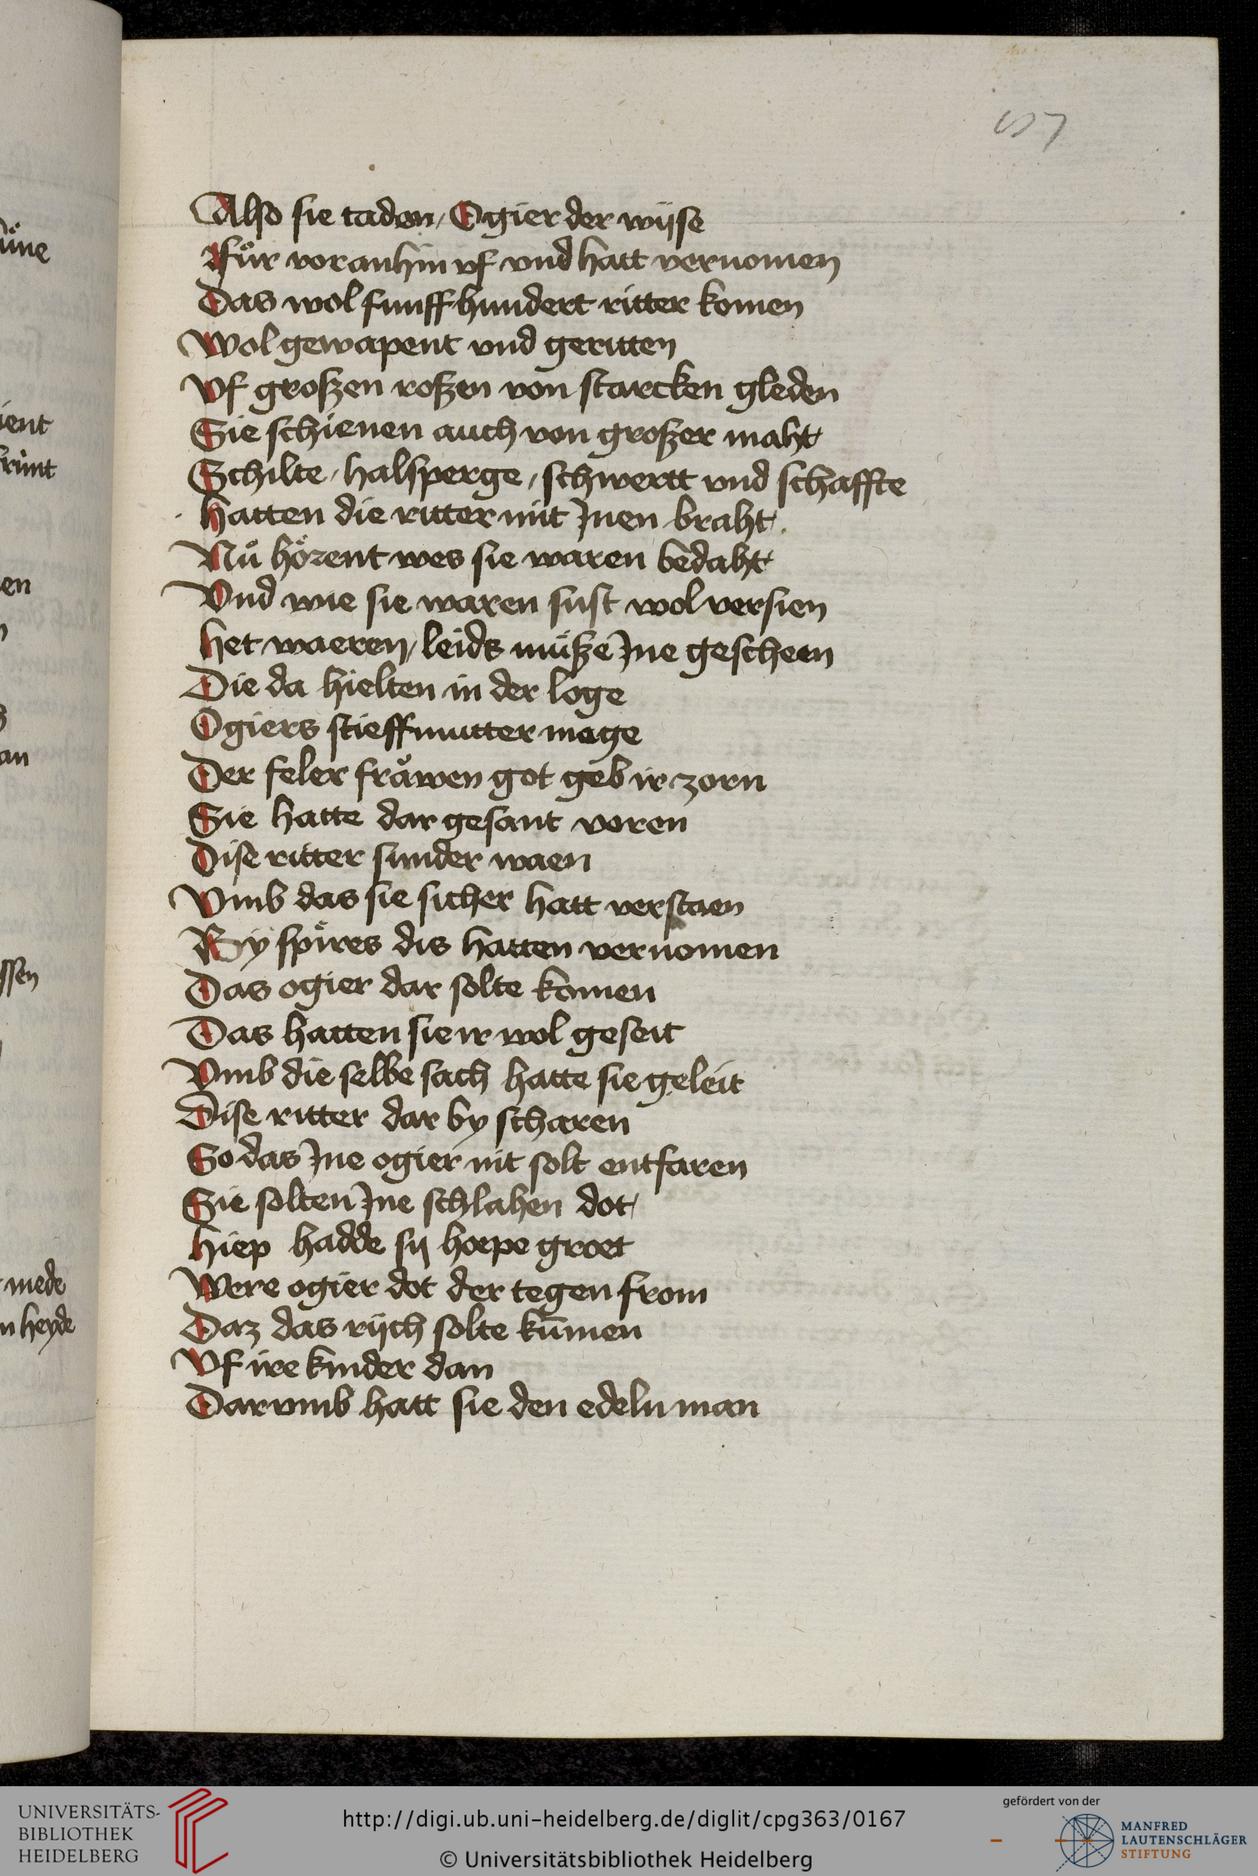 Also sie tadon / Ogier der wijse
Fůr vor anhin vf vnd hatt vernomen
Das wol funff hundert ritter komen
Wol gewapent vnd geritten
Vf großen roßen von starcken gleden
Sie schienen auch von großer maht
Schilte / halsperge / schwertt vnd schaffte
hatten die ritter mit Jnen braht
Nů hörent wes sie waren bedaht
Vnd wie sie waren sust wol versien
het waeren / leids müße Jne gescheen
Die da hielten in der loge
Ogiers stieffmutter mage
Der feler fraůwen got geb ir zorn
Sie hatte dar gesant voren
Dise ritter sunder waen
Vmb das sie sicher hatt verstaen
By spůres dis hatten vernomen
Das ogier dar solte komen
Das hatten sie ir wol geseit
Vmb die selbe sach hatte sie geleit
Dise ritter dar by scharen
So das Jne ogier nit solt entfaren
Sie solten Jne schlahen dot
hiep hadde sij hoepe groet
Were ogier dot der tegen from
Daz das rijch solte kūmen
Vf ire kinder dan
Darvmb hatt sie den edeln man
UNIVERSITÄTS-
BIBLIOTHEK
HEIDELBERG
http://digi.ub.uni-heidelberg.de/diglit/cpg363/0167
© Universitätsbibliothek Heidelberg
gefördert von der
MANFRED
LAUTENSCHLÄGER
STIFTUNG